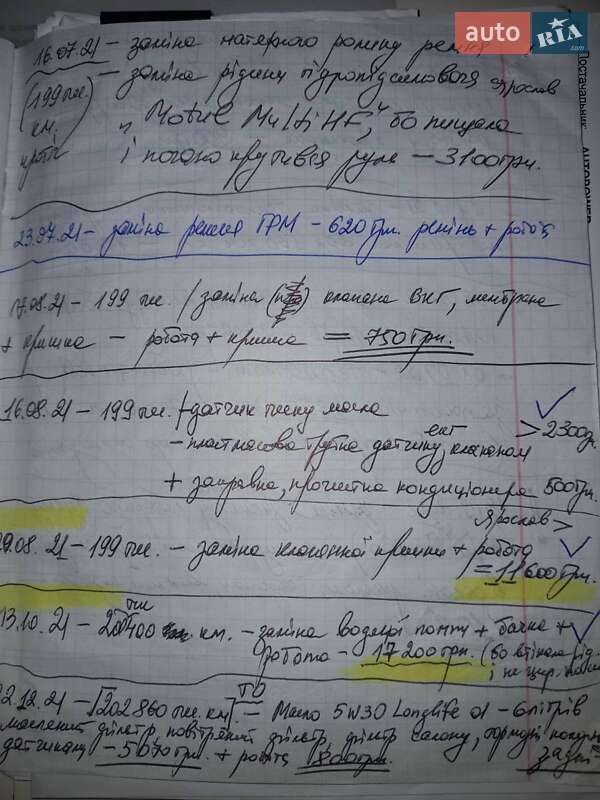 auto RIA .com
16.07.21 – заміна натяжного ролику ременя
(199 тис. км. пробіг) – заміна рідини гідропідсилювача Ярослав
"Motul Multi HF", бо пищала
і погано крутився руль – 3100грн.
Постачальник AUTOPOWER
23.07.21 – заміна ременя ГРМ – 620грн. ремінь + робота
17.08.21 – 199 тис. / заміна клапана ВКГ, мембрана
+ кришка – робота + кришка = 750грн.
16.08.21 – 199 тис. / датчик тиску масла
– пластмасова трубка датчику, клапаном вкг > 2300
+ заправка, прочистка кондиціонера 500грн.
Ярослав >
29.08.21 – 199 тис. – заміна клапанної кришки + робота
= 11600грн.
13.10.21 – 200400 км. – заміна водяної помпи + бачка +
робота – 17200грн. (бо втікала рід.
і не цир.
22.12.21 – 202860 тис. км. ТО – Масло 5W30 Longlife 01 – 6 літрів
масляний фільтр, повітряний фільтр, фільтр салону, тормозні
датчиками – 5070грн. + робота 1800грн. задні